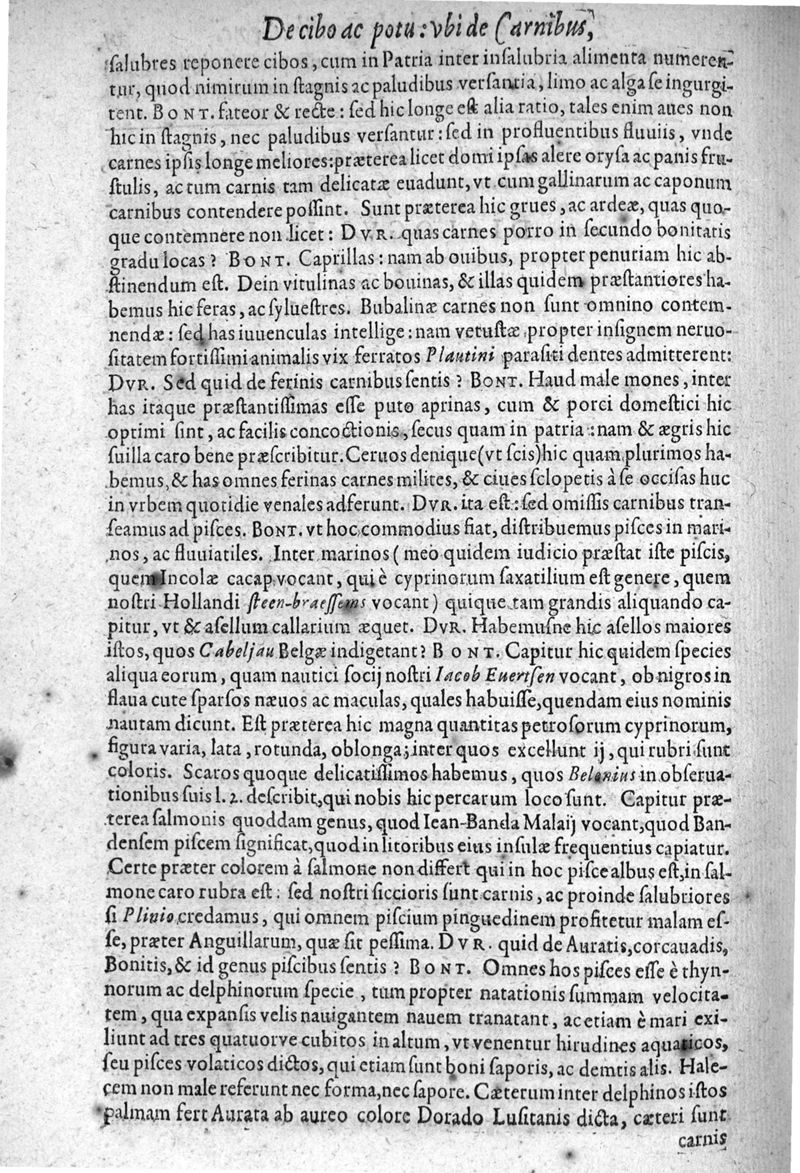 De cibo ac potu: vbi de Carnibus,
ſalubres reponere cibos, cum in Patria inter inſalubria alimenta numeren-
tur, quod nimirum in ſtagnis ac paludibus verſantia, limo ac alga ſe ingurgi-
tent. BONT. fateor & recte: ſed hic longe eſt alia ratio, tales enim aues non
hic in ſtagnis, nec paludibus verſantur: ſed in profluentibus fluuiis, vnde
carnes ipſis longe meliores: præterea licet domi ipſas alere orysa ac panis fru-
ſtulis, ac tum carnis tam delicatæ euadunt, vt cum gallinarum ac caponum
carnibus contendere poſſint. Sunt præterea hic grues, ac ardeæ, quas quo-
que contemnere non licet: DVR. quas carnes porro in ſecundo bonitatis
gradu locas? BONT. Caprillas: nam ab ouibus, propter penuriam hic ab-
ſtinendum eſt. Dein vitulinas ac bouinas, & illas quidem præſtantiores ha-
bemus hic feras, ac ſylueſtres. Bubalinæ carnes non ſunt omnino contem-
nendæ: ſed has iuuenculas intellige: nam vetuſtæ propter inſignem neruo-
ſitatem fortiſſimi animalis vix ferratos Plautini paraſiti dentes admitterent:
DVR. Sed quid de ferinis carnibus ſentis? BONT. Haud male mones, inter
has itaque præſtantiſſimas eſſe puto aprinas, cum & porci domeſtici hic
optimi ſint, ac facilis concoctionis, ſecus quam in patria: nam & ægris hic
ſuilla caro bene præſcribitur. Ceruos denique (vt ſcis) hic quam plurimos ha-
bemus, & has omnes ferinas carnes milites, & ciues ſclopetis à ſe occiſas huc
in vrbem quotidie venales adferunt. DVR. ita eſt: ſed omiſſis carnibus tran-
ſeamus ad piſces. BONT. vt hoc commodius fiat, diſtribuemus piſces in mari-
nos, ac fluuiatiles. Inter marinos (meo quidem iudicio præſtat iſte piſcis,
quem Incolæ cacap vocant, qui è cyprinorum ſaxatilium eſt genere, quem
noſtri Hollandi ſteen-braeſſems vocant) quique tam grandis aliquando ca-
pitur, vt & aſellum callarium æquet. DVR. Habemuſne hic aſellos maiores
iſtos, quos Cabeljau Belgæ indigetant? BONT. Capitur hic quidem ſpecies
aliqua eorum, quam nautici ſocij noſtri Iacob Euertſen vocant, ob nigros in
flaua cute ſparſos næuos ac maculas, quales habuiſſe, quendam eius nominis
nautam dicunt. Eſt præterea hic magna quantitas petroſorum cyprinorum,
figura varia, lata, rotunda, oblonga; inter quos excellunt ij, qui rubri ſunt
coloris. Scaros quoque delicatiſſimos habemus, quos Belonius in obſerua-
tionibus ſuis l. 2. deſcribit, qui nobis hic percarum loco ſunt. Capitur præ-
terea ſalmonis quoddam genus, quod Iean-Banda Malaij vocant, quod Ban-
denſem piſcem ſignificat, quod in litoribus eius inſulæ frequentius capiatur.
Certe præter colorem à ſalmone non differt qui in hoc piſce albus eſt, in ſal-
mone caro rubra eſt: ſed noſtri ſiccioris ſunt carnis, ac proinde ſalubriores
ſi Plinio credamus, qui omnem piſcium pinguedinem profitetur malam eſ-
ſe, præter Anguillarum, quæ ſit peſſima. DVR. quid de Auratis, corcauadis,
Bonitis, & id genus piſcibus ſentis? BONT. Omnes hos piſces eſſe è thyn-
norum ac delphinorum ſpecie, tum propter natationis ſummam velocita-
tem, qua expanſis velis nauigantem nauem tranatant, ac etiam è mari exi-
liunt ad tres quatuorve cubitos in altum, vt venentur hirudines aquaticos,
ſeu piſces volaticos dictos, qui etiam ſunt boni ſaporis, ac demtis alis. Hale-
cem non male referunt nec forma, nec ſapore. Cæterum inter delphinos iſtos
palmam fert Aurata ab aureo colore Dorado Luſitanis dicta, cæteri ſunt
carnis